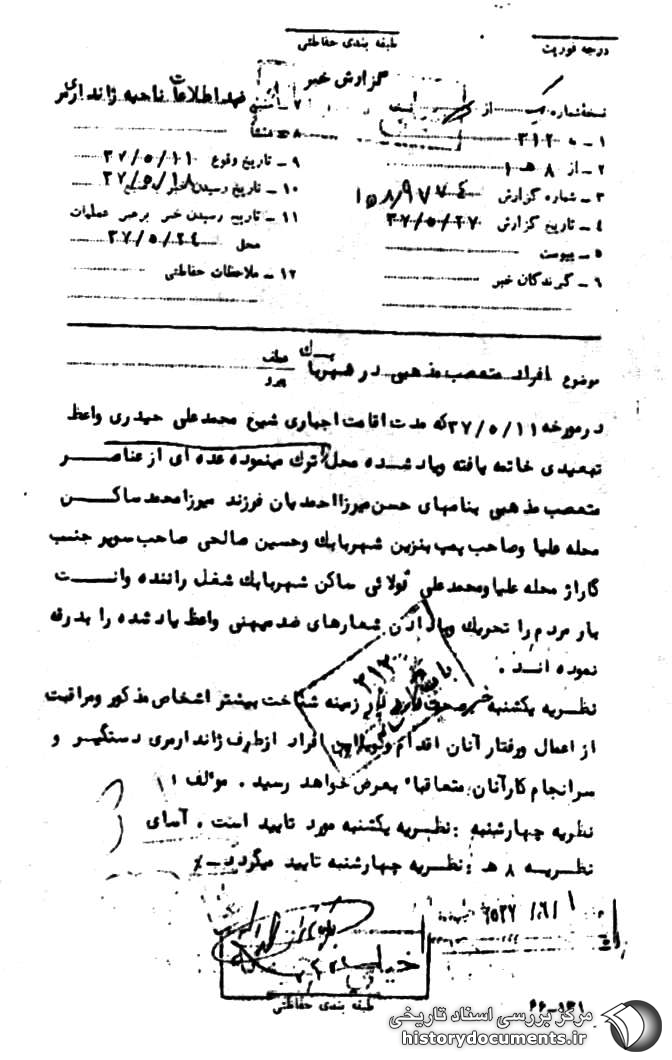 درجه فوریت
طبقه بندی حفاظتی
گزارش خبر
نسخه شماره از نسخه
۱ - به ۳۱۲
۲ - از ۸ هـ ۱
۳ - شماره گزارش ۱۵۸/۹۷۷۴
۴ - تاریخ گزارش ۳۷/۵/۲۷
۵ - پیوست
۶ - گیرندگان خبر
۷ - منبع فهد اطلاعات ناحیه ژاندارمری
۸ - منشأ
۹ - تاریخ وقوع ۳۷/۵/۱۱
۱۰ - تاریخ رسیدن خبر به منبع ۳۷/۵/۱۸
۱۱ - تاریخ رسیدن خبر برهبر عملیات
محل ۳۷/۵/۲۴
۱۲ - ملاحظات حفاظتی
موضوع افراد متعصب مذهبی در شهربابك
عطف
پیرو
درمورخه ۳۷/۵/۱۱ که مدت اقامت اجباری شیخ محمدعلی حیدری واعظ
تبعیدی خاتمه یافته ویاد شده محل را ترك مینموده عده ای ازعناصر
متعصب مذهبی بنامهای حسن میرزا احمدیان فرزند میرزا محمد ساکن
محله علیا وصاحب پمپ بنزین شهربابك وحسین صالحی صاحب سوپر جنب
گاراژ محله علیا ومحمدعلی تولائی ساکن شهربابك شغل راننده وانت
بار مردم را تحریك وبا دادن شعارهای ضد میهنی واعظ یاد شده را بدرقه
نموده اند .
نظریه یکشنبه خبر صحت دارد در زمینه شناخت بیشتر اشخاص مذکور ومراقبت
از اعمال ورفتار آنان اقدام افراد ازطرف ژاندارمری دستگیر و
سرانجام کارآنان متعاقبا" بعرض خواهد رسید . مولف
نظریه چهارشنبه : نظریه یکشنبه مورد تایید است . آسای
نظریه ۸ هـ : نظریه چهارشنبه تایید میگردد
۳۱۲
طبقه بندی حفاظتی
مرکز بررسی اسناد تاریخی
historydocuments.ir